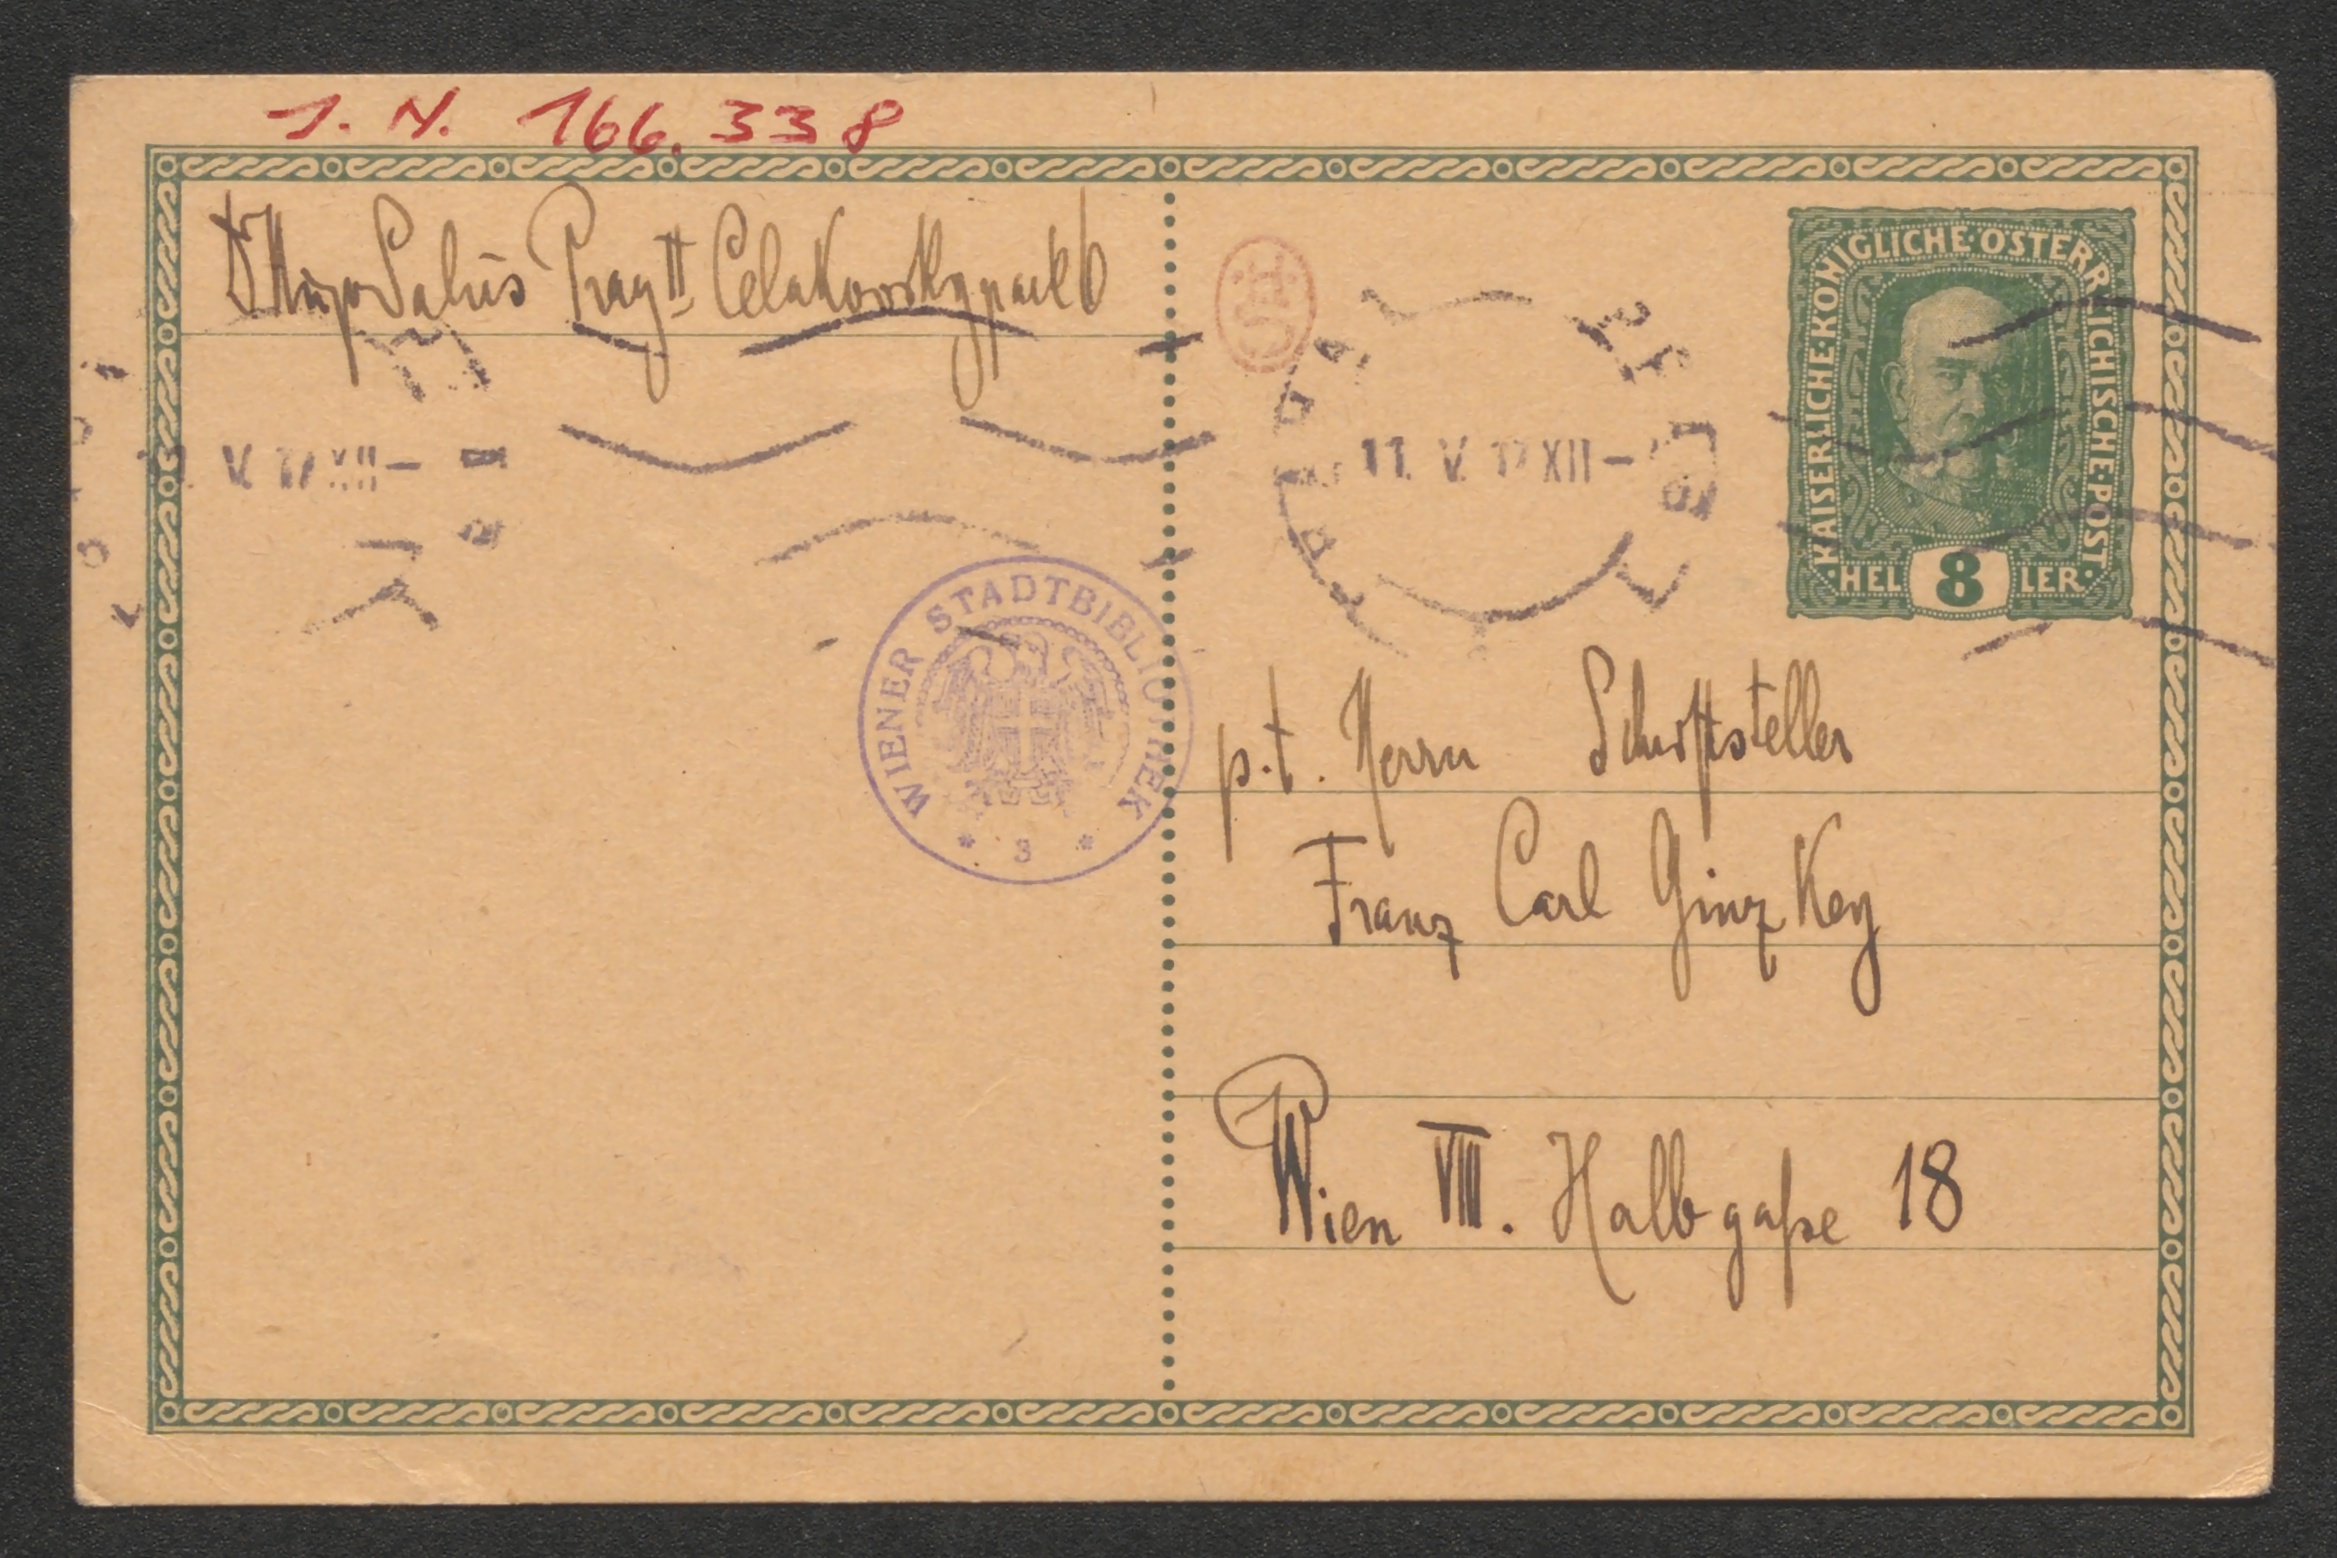 J. N. 166.338
Dr Hugo Salus Prag II Celakovskypark 6
V. 17 XII–
11. V. 17 XII–
KAISERLICHE·KÖNIGLICHE·ÖSTERREICHISCHE·POST
HEL 8 LER
WIENER STADTBIBLIOTHEK
* s *
p.t. Herrn Schriftsteller
Franz Carl Ginzkey
Wien VIII. Halbgaße 18